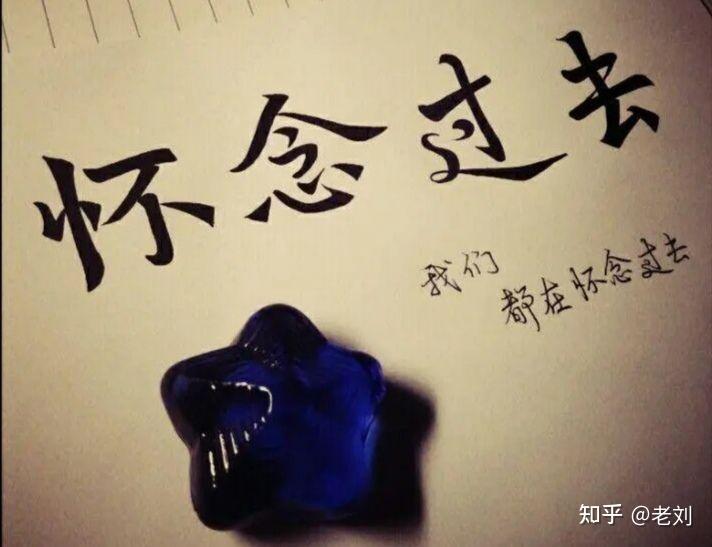 怀念过去
我们
都在怀念过去
知乎 @老刘